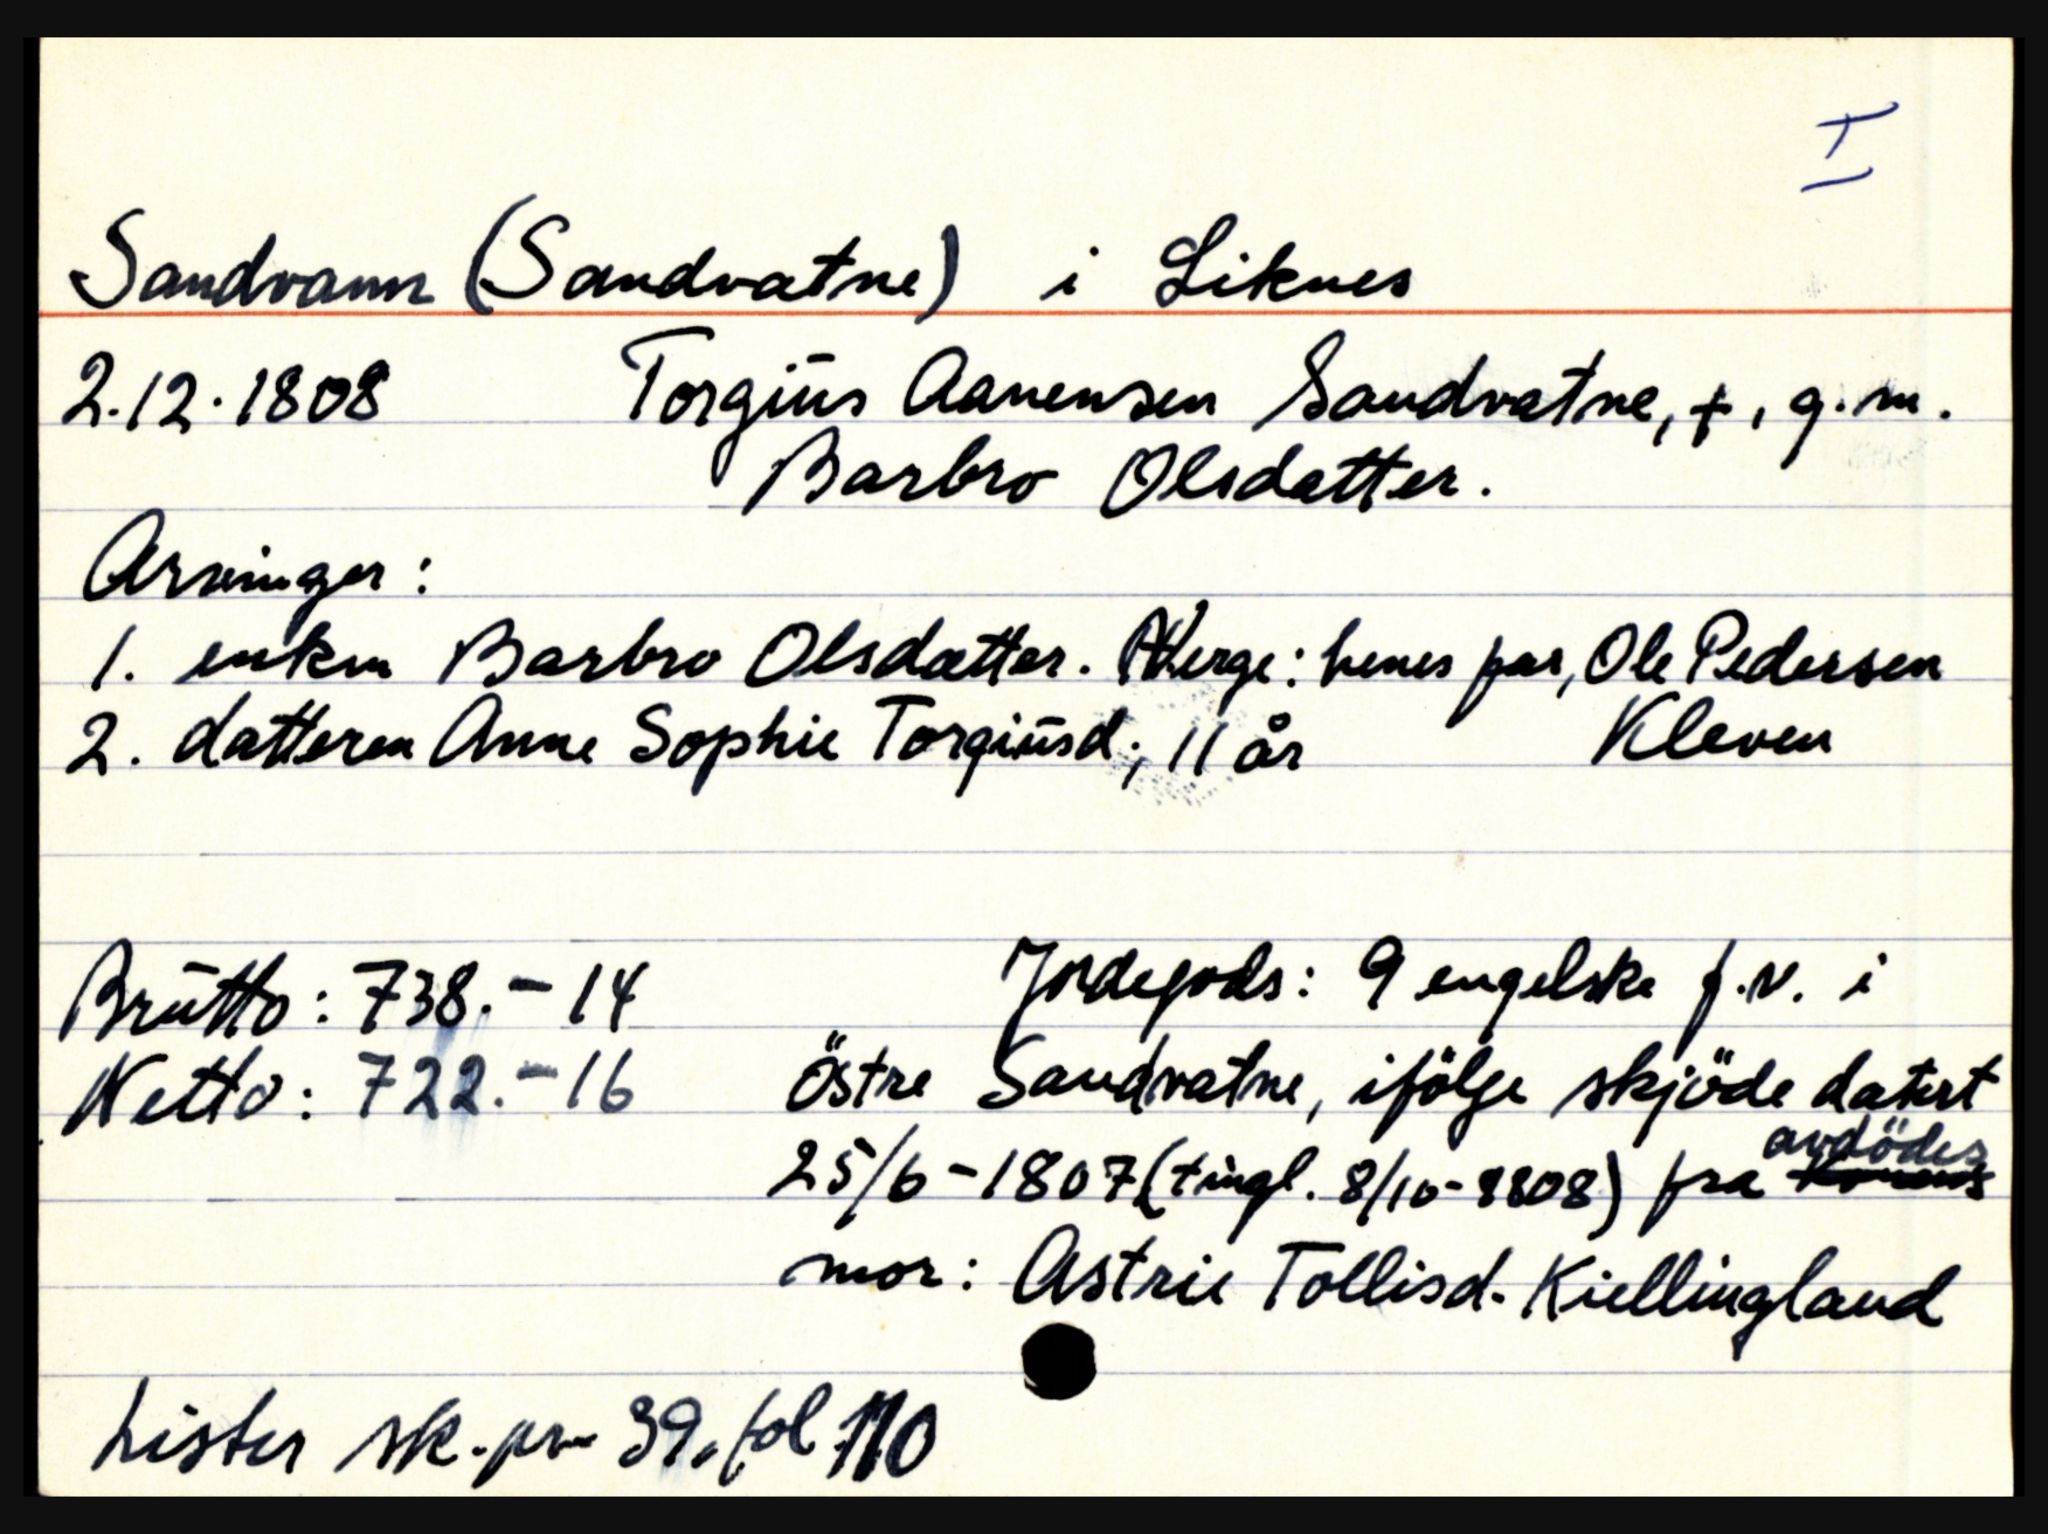 I
Sandvann (Sandvatne) i Liknes
2.12.1808 Torgius Aanensen Sandvatne, †, g.m.
Barbro Olsdatter.
Arvinger:
1. enken Barbro Olsdatter. Verge: henes far, Ole Pedersen
2. datteren Anne Sophie Torgiusd., 11 år Kleven
Brutto: 738.-14 Jordegods: 9 engelske f.v. i
Netto: 722.-16 Östre Sandvatne, ifölge skjöde datert
avdödes
25/6-1807 (tingl. 8/10-1808) fra
mor: Astrie Tollisd. Kiellingland
Lister sk.pr. 39, fol 110